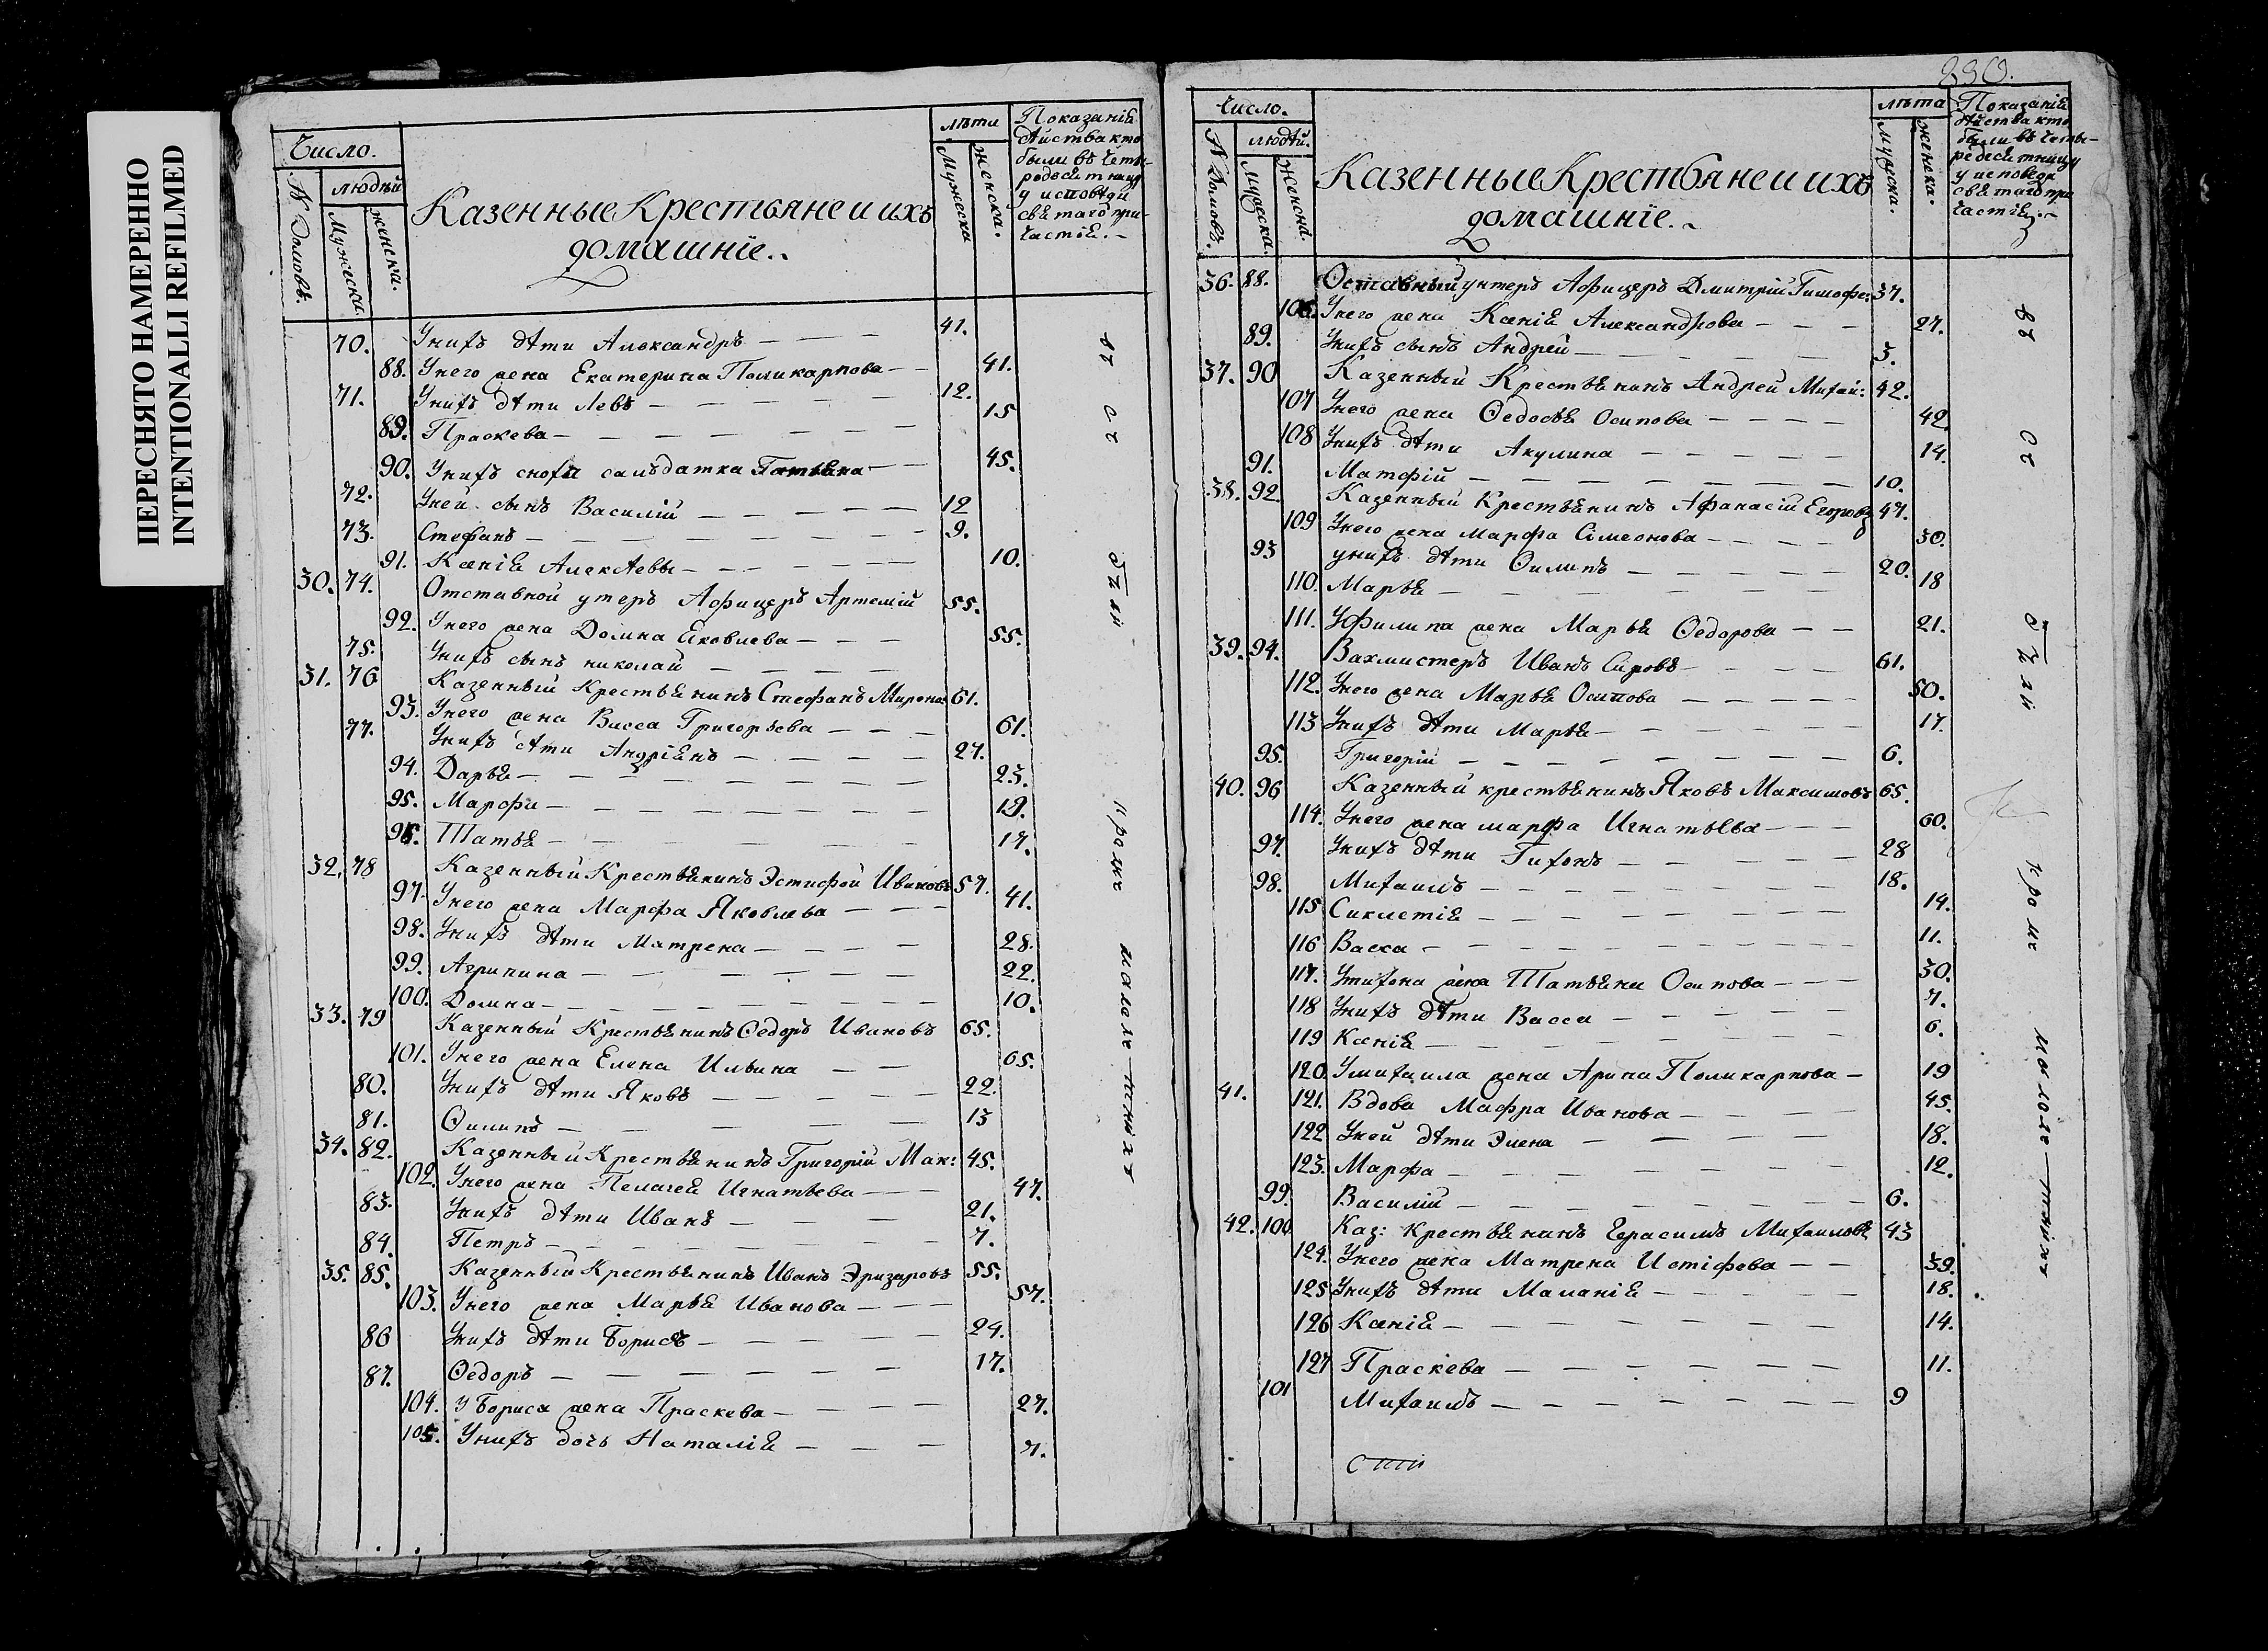 ПЕРЕСНЯТО НАМЕРЕННО
INTENTIONALLI REFILMED
Число.
людѣй
№ Домовъ.
Мужески.
женски.
Казенные Крестьяне и ихъ
домашнїе..
лѣти
Мужеска
женска.
Показаніѣ
дѣйства кто
были въ четы-
редесѣтницу
у исповѣди
свѣтаго при-
частіѣ.
70. Унихъ дѣти Александръ 41.
88. Унего жена Екатерина Поликарпова 41.
71. Унихъ дѣти Левъ 12.
89. Праскева 15
90. Унихъ сноха салъдатка Татьѣна 45.
72. Уней сынъ Василій 12
73. Стефанъ 9.
91. Ксеніѣ Алексѣевы 10.
30. 74. Отставной утеръ Афицеръ Артемій 55.
92. Унего жена Домна Яковлева 55.
75. Унихъ сынъ николай
31. 76 Казенный Крестьѣнинъ Стефанъ Мирона: 61.
93. Унего жена Васса Григорьева 61.
77. Унихъ дѣти Андріѣнъ 27.
94. Дарьѣ 23.
95. Марфи 19.
96. Татьѣ 17.
32. 78 Казенный Крестьѣнинъ Эстифей Ивановъ 57.
97. Унего жена Марфа Яковлева 41.
98. Унихъ дѣти Матрена 28.
99. Агрипина 22.
100. Домна 10.
33. 79 Казенный Крестьѣнинъ Ѳедоръ Ивановъ 65.
101. Унего жена Елена Ильина 65.
80. Унихъ дѣти Яковъ 22.
81. Ѳилипъ 13
34. 82. Казенный Крестьѣнинъ Григорій Мак: 45.
102. Унего жена Пелагея Игнатьева 47.
83. Унихъ дѣти Иванъ 21.
84. Петръ 7.
35. 85. Казенный Крестьѣнинъ Иванъ Эризаровъ 55.
103. Унего жена Марьѣ Иванова 57.
86 Унихъ дѣти Борисъ 24.
87. Ѳедоръ 17.
104. У Бориса жена Праскева 27.
105. Унихъ дочь Наталіѣ 7.
230.
Число.
людѣй.
№ Домовъ.
мужеска.
женска.
Казенные Крестьяне и ихъ
домашнїе..
лѣта
мужеска.
женска.
Показаніѣ
дѣйства кто
были въ четы-
редесѣтницу
у исповеди
свѣтаго при
частіѣ.
36. 88. Оставный унтеръ Афицеръ Дмитрій Тимофе: 37.
106. Унего жена Ксеніѣ Александрова 27.
89. Унихъ сынъ Андрей 3.
37. 90 Казенный Крестьѣнинъ Андрей Михай: 42.
107 Унего жена Ѳедосьѣ Осипова 42.
108 Унихъ дѣти Акулина 14.
91. Матфій 10.
38. 92. Казенный Крестьѣнинъ Афанасій Егоровъ 47.
109 Унего жена марфа Сімеонова 30.
93 унихъ дѣти Ѳилипъ 20.
110. Марьѣ 18
111. У филипа жена Марьѣ Ѳедорова 21.
39. 94. Вахмистеръ Иванъ Сировъ 61.
112. Унего жена Марьѣ Осипова 50.
113 Унихъ дѣти Марьѣ 17.
95. Григорій 6.
40. 96 Казенный крестьѣнинъ Яковъ Максимовъ 65.
114. Унего жена марфа Игнатьева 60.
97. Унихъ дѣти Тихонъ 28
98. Михаилъ 18.
115 Сиклетіѣ 14.
116 Васса 11.
117. Утихона жена Татьѣна Осипова 30.
118 Унихъ дѣти Васса 7.
119 Ксеніѣ 6.
120. Умихаила жена Арина Поликарпова 19
41. 121. Вдова Мафра Иванова 45.
122 Уней дѣти Элена 18.
123. Марфа 12.
99. Василій 6.
42. 100 Каз: Крестьѣнинъ Герасимъ Михаиловъ 43
124. Унего жена Матрена Истіфева 39.
125 Унихъ дѣти Маланіѣ 18.
126 Ксеніѣ 14.
127 Праскева 11.
101 Михаилъ 9